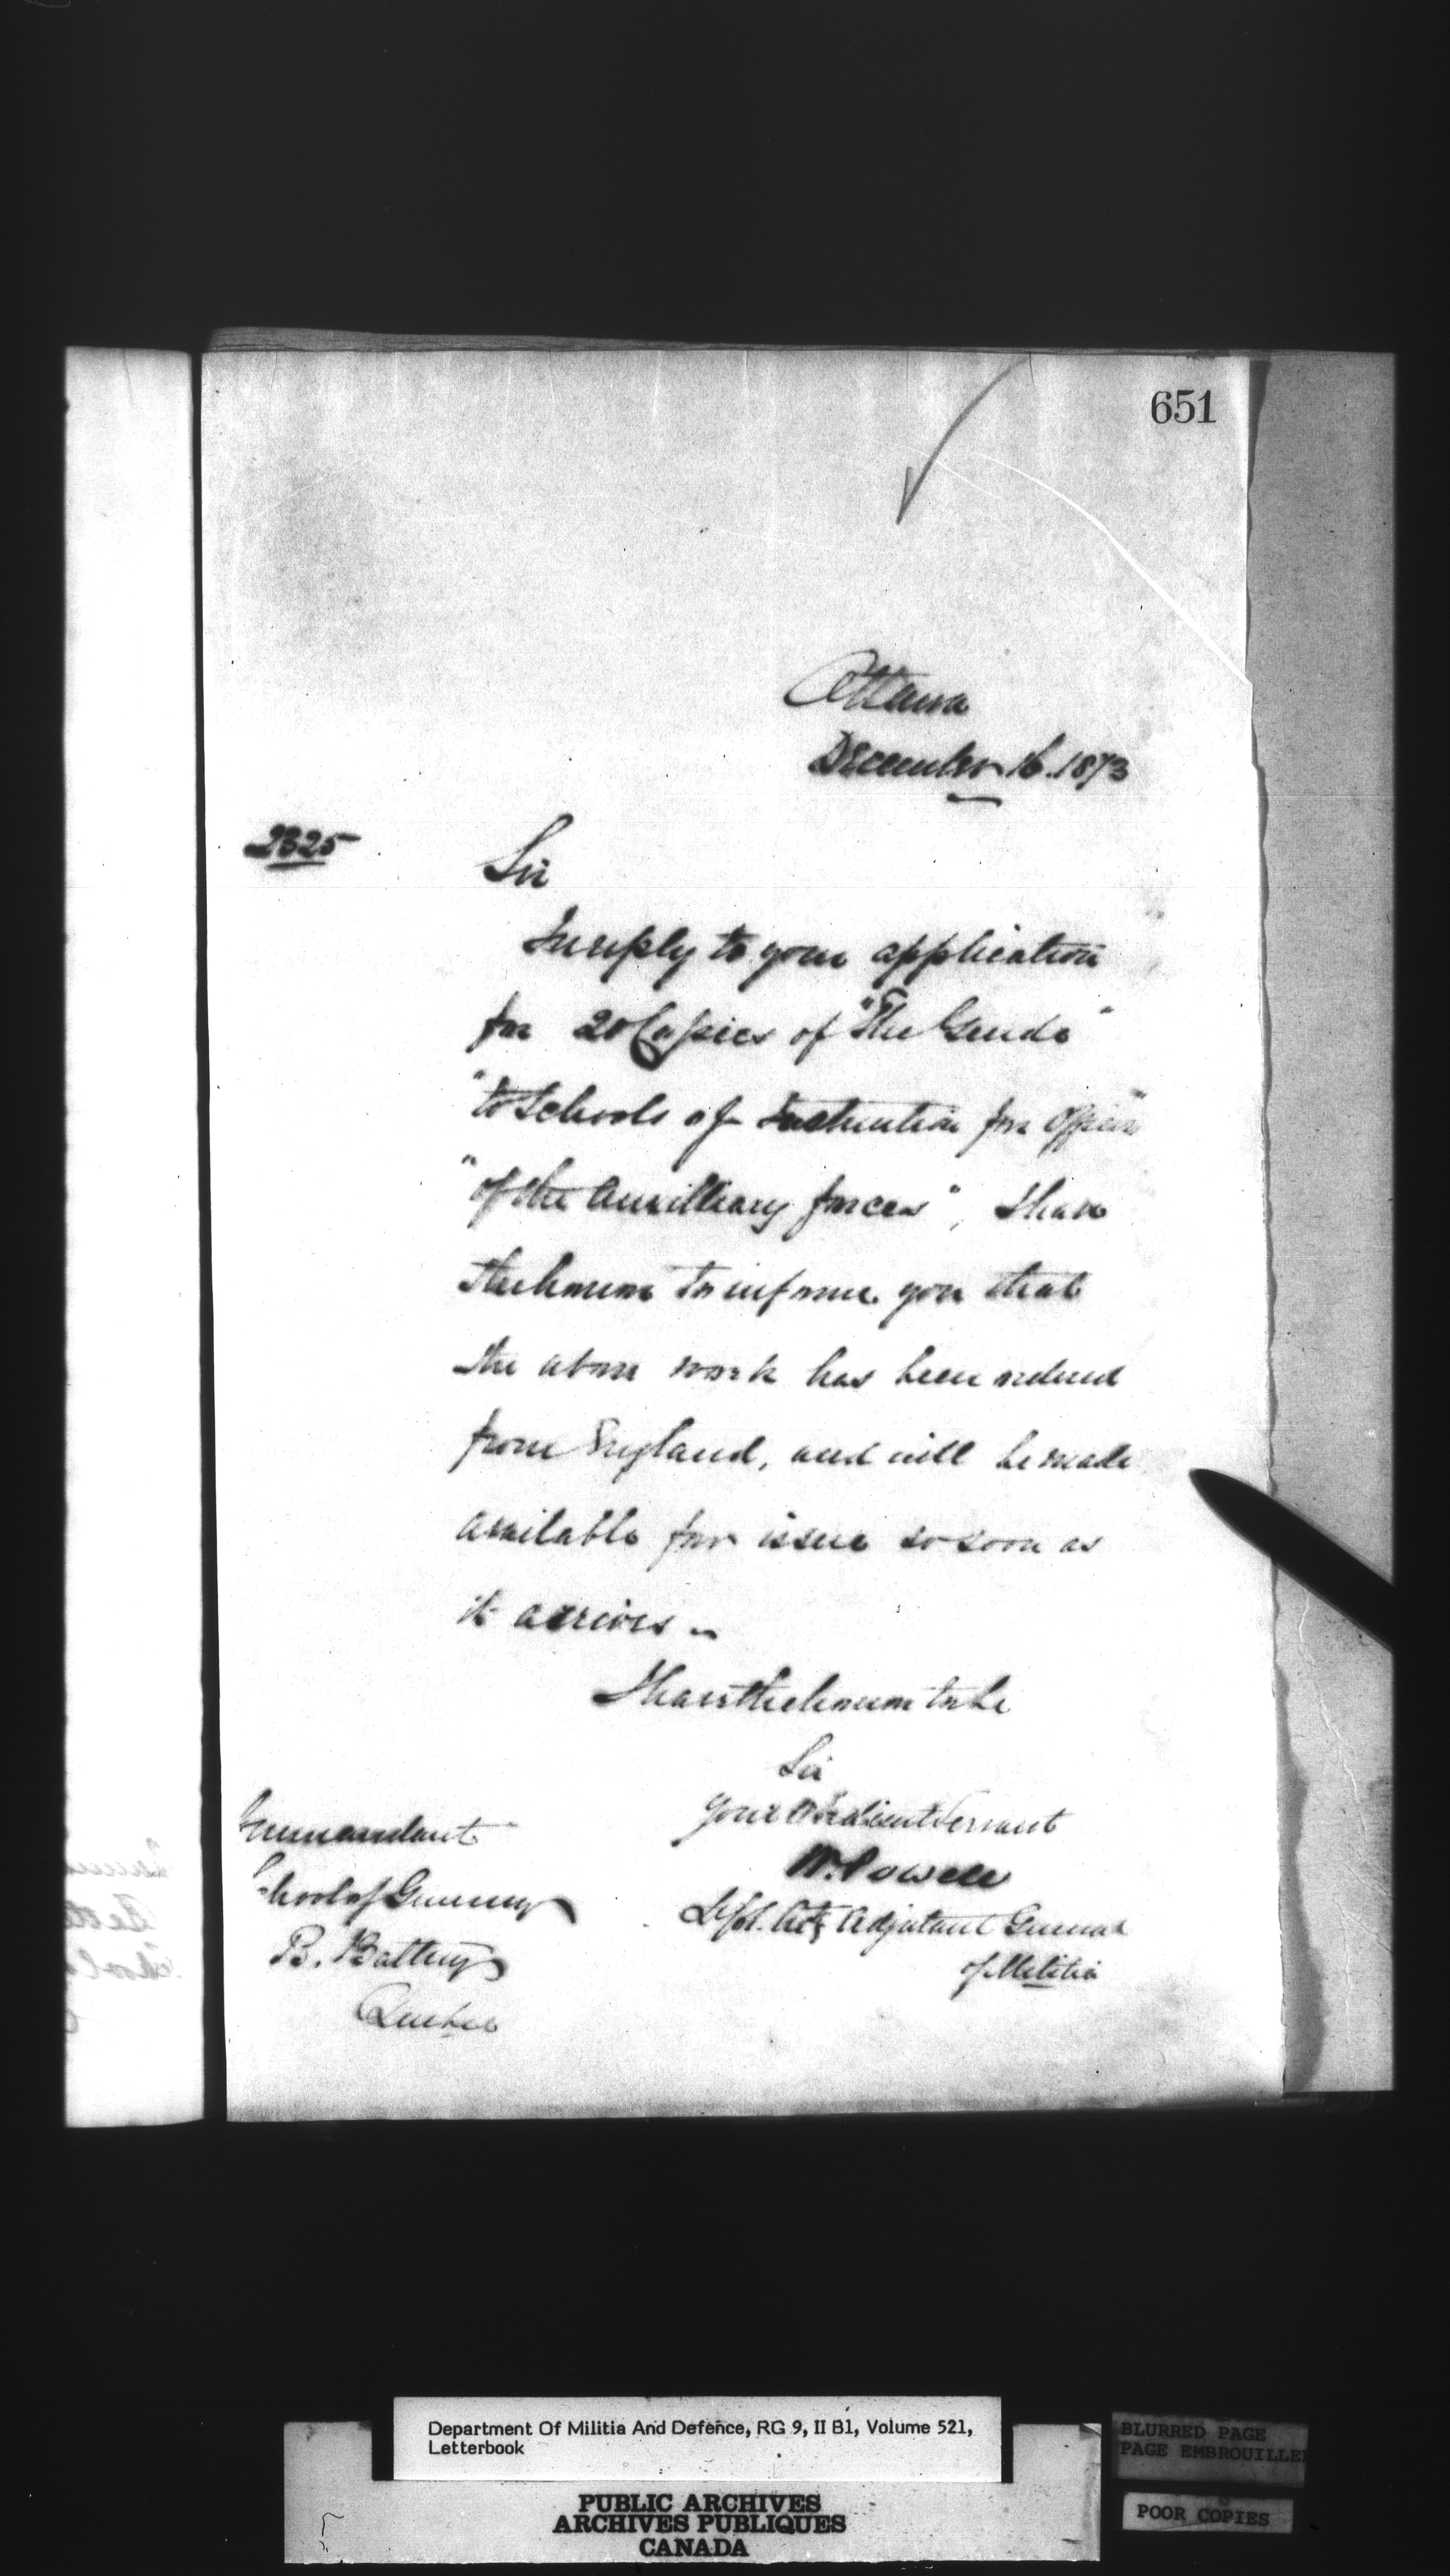 651
Ottawa
December 16. 1873
2325
Sir
In reply to your application
for 20 Copies of "The Guide"
"to Schools of Instruction for Officers"
"of the Auxilliary forces", I have
the honor to inform you that
the above work has been ordered
from England, and will be made
available for issue so soon as
it arrives
I have the honor to be
Sir
your obedient servant
W. Powell
Adjutant General
of Militia
Commandant
School of Gunnery
B. Battery
Quebec
Department Of Militia And Defence, RG 9, II B1, Volume 521,
Letterbook
PUBLIC ARCHIVES
ARCHIVES PUBLIQUES
CANADA
BLURRED PAGE
PAGE EMBROUILLE
POOR COPIES